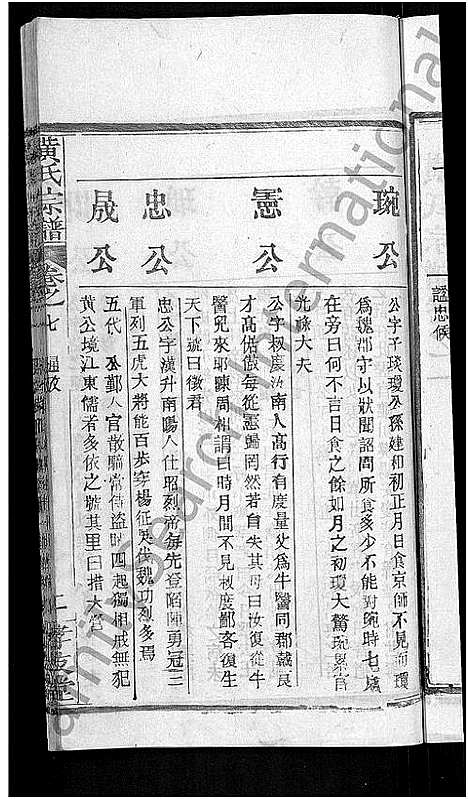 諡忠侯
琬公
公字子琰瓊公孫建和初正月日食京師不見而瓊
爲魏郡守以狀聞詔問所食多少不能對琬時七歲
在旁曰何不言日食之餘如月之初瓊大驚琬累官
光祿大夫
憲公
公字叔慶汝南人高行有度量父爲牛醫同郡戴良
才高倨傲每從憲歸罔然若自失其母曰汝復從牛
醫兒來耶陳周相謂曰時月間不見叔度鄙吝復生
天下號曰徵君
忠公
忠公字漢升南陽人仕昭烈帝每先登陷陣勇冠三
軍列五虎大將能百步穿楊征吳伐魏功烈多焉
晟公
五代 公鄞人官散騎常侍盜賊四起獨相戒無犯
黃公境江東儒者多依之號其里曰措大營
黃氏宗譜
卷之七
孝友堂
Family Search International